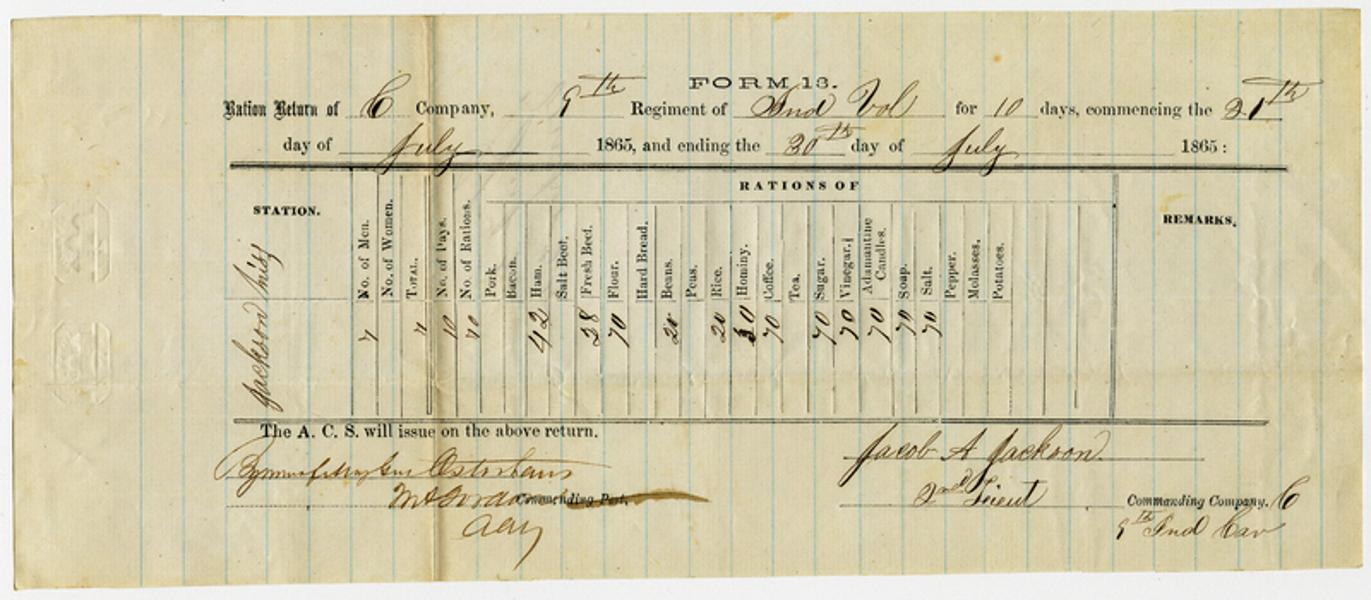 FORM 13.
Ration Return of C Company, 9th Regiment of Ind Vol for 10 days, commencing the 21th
day of July 1865, and ending the 30th day of July 1865:
RATIONS OF
STATION.
No. of Men.
No. of Women.
TOTAL.
No. of Days.
No. of Rations.
Pork.
Bacon.
Ham.
Salt Beef.
Fresh Beef.
Flour.
Hard Bread.
Beans.
Peas.
Rice.
Hominy.
Coffee.
Tea.
Sugar.
Vinegar.
Adamantine Candles.
Soap.
Salt.
Pepper.
Molasses.
Potatoes.
REMARKS.
Jackson Miss 7 7 10 70 42 28 70 20 20 30 70 70 70 70 70 70
The A. C. S. will issue on the above return.
By Osterhaus
Commanding Post.
Jacob A Jackson
2nd Lieut Commanding Company. C
9th Ind Cav